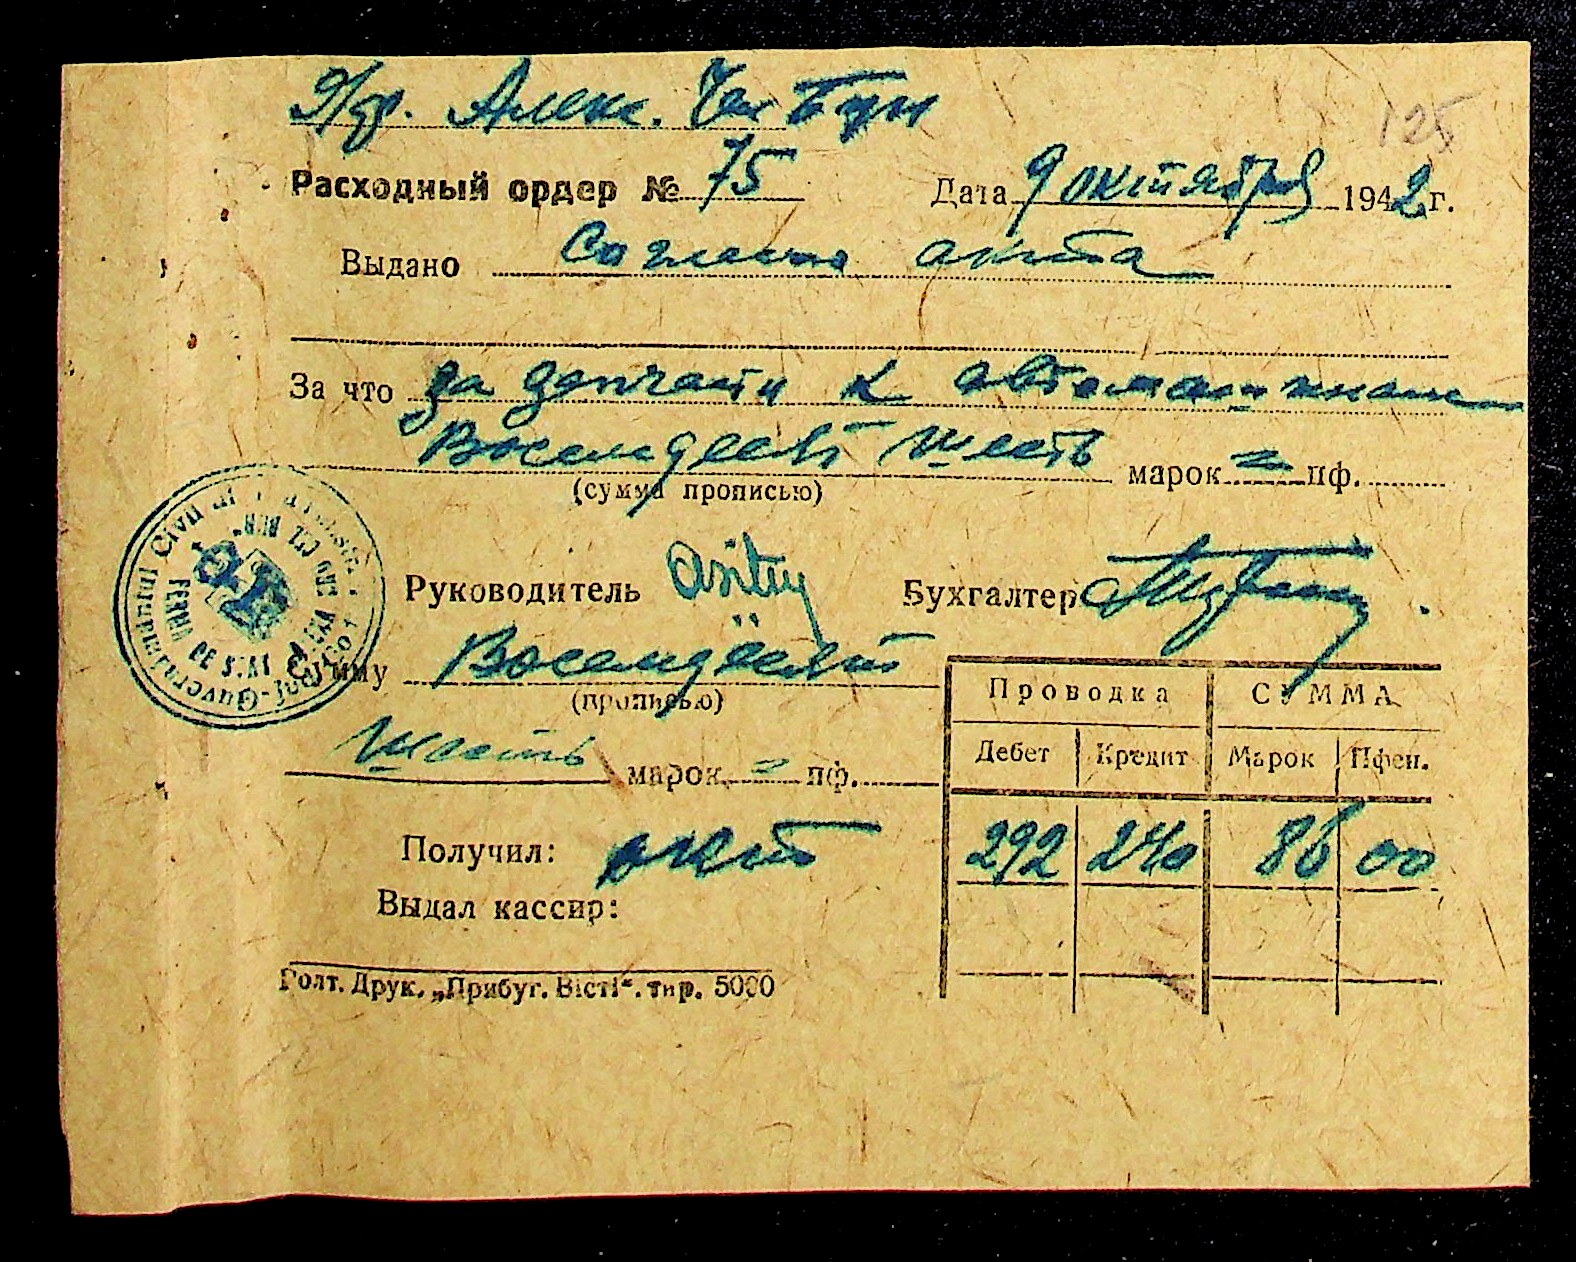 125
Расходный ордер № 75 Дата 9 октября 1942 г.
Выдано Согласно акта
За что за запчасти к автомашинам
Восемдесят шесть марок = пф.
(сумма прописью)
Руководитель Бухгалтер
Сумму Восемдесят
(прописью)
шесть марок = пф.
Проводка СУММА
Дебет Кредит Марок Пфен.
292 240 86 00
Получил: акт
Выдал кассир:
Голт. Друк. „Прибуг. Вісті“. тир. 5000
Guvernământul Civil al
FERMA DE STAT